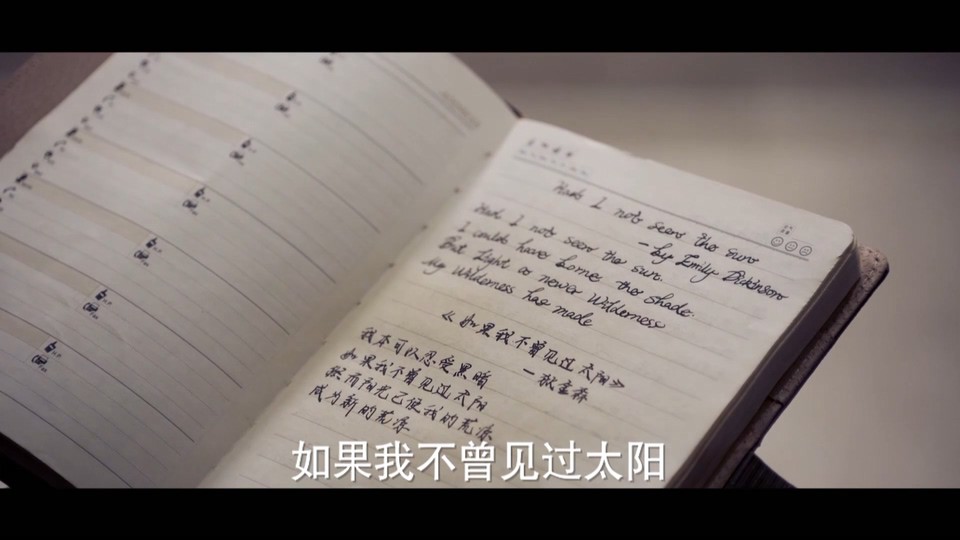 Had I not seen the sun
— by Emily Dickinson
Had I not seen the sun.
I could have borne the shade.
But Light a newer Wilderness
My Wilderness has made
《如果我不曾见过太阳》
—狄金森
我本可以忍受黑暗
如果我不曾见过太阳
然而阳光已使我的荒凉
成为新的荒凉
如果我不曾见过太阳